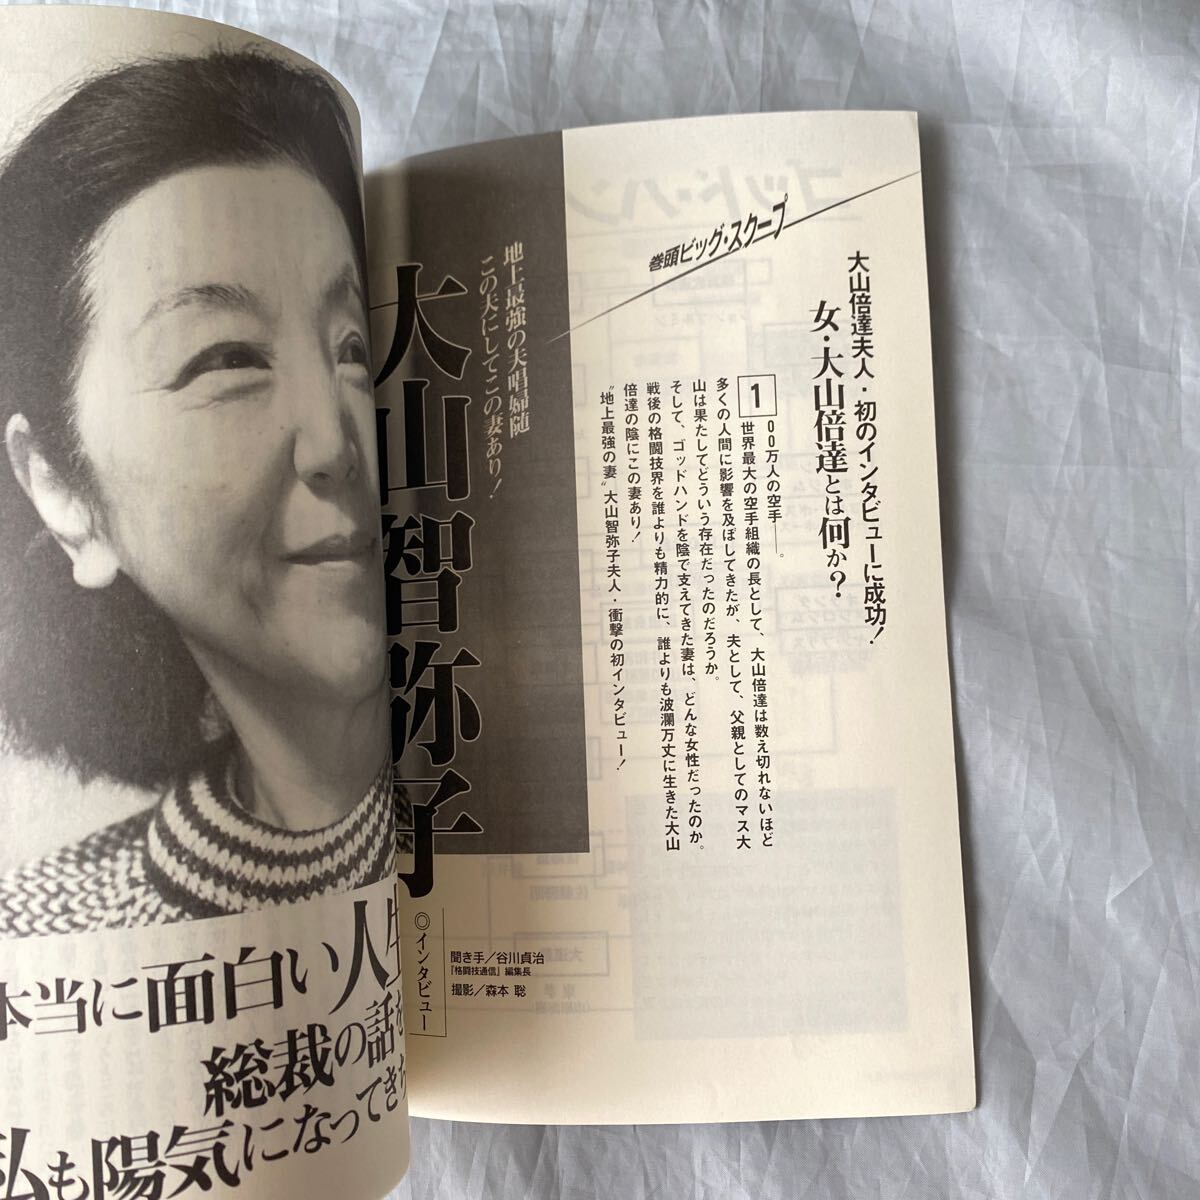 巻頭ビッグ・スクープ
大山倍達夫人・初のインタビューに成功!
女・大山倍達とは何か?
1
00万人の空手――。
世界最大の空手組織の長として、大山倍達は数え切れないほど
多くの人間に影響を及ぼしてきたが、夫として、父親としてのマス大
山は果たしてどういう存在だったのだろうか。
そして、ゴッドハンドを陰で支えてきた妻は、どんな女性だったのか。
戦後の格闘技界を誰よりも精力的に、誰よりも波瀾万丈に生きた大山
倍達の陰にこの妻あり!
“地上最強の妻”大山智弥子夫人・衝撃の初インタビュー!
地上最強の夫唱婦随
この夫にしてこの妻あり!
大山智弥子
◎インタビュー
聞き手/谷川貞治
『格闘技通信』編集長
撮影/森本 聡
本当に面白い人生
総裁の話を
私も陽気になってきち